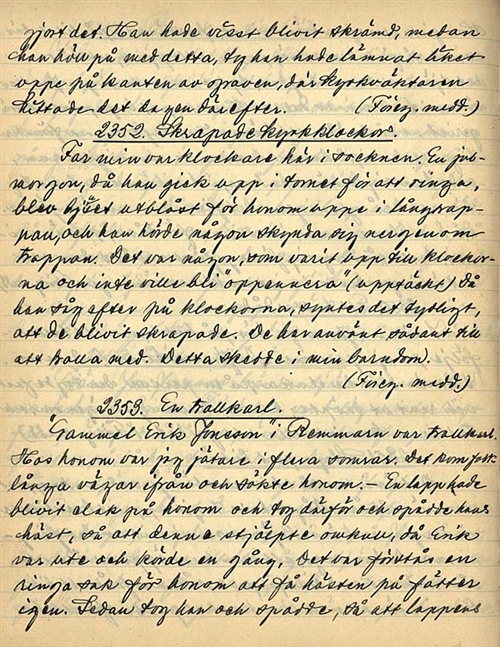 gjort det. Han hade visst blivit skrämd, medan
han höll på med detta, ty han hade lämnat liket
uppe på kanten av graven, där kyrkväktaren
hittade det dagen därefter. (Föreg. medd.)
2352. Skrapade kyrkklockor.
Far min var klockare här i socknen. En jul-
morgon, då han gick upp i tornet för att ringa,
blev ljuset utblåst för honom uppe i långtrap-
pan, och han hörde någon skynda sig ner genom
trappan. Det var någon, som varit upp till klockor-
na och inte ville bli "öppennera" (upptäckt) Då
han såg efter på klockorna, syntes det tydligt,
att de blivit skrapade. De har använt sådant till
att tralla med. Detta skedde i min barndom.
(Föreg. medd.)
2353. En trallkarl.
"Gammel Erik Jonsson" i Remmarn var trallkarl.
Hos honom var jag jätare i flera somrar. Det kom folk
långa vägar ifrån och sökte honom. – En lapp hade
blivit elak på honom och tog därför och spådde hans
häst, så att denne stjälpte omkull, då Erik
var ute och körde en gång. Det var förstås en
ringa sak för honom att få hästen på fötter
igen. Sedan tog han och spådde, så att lappens